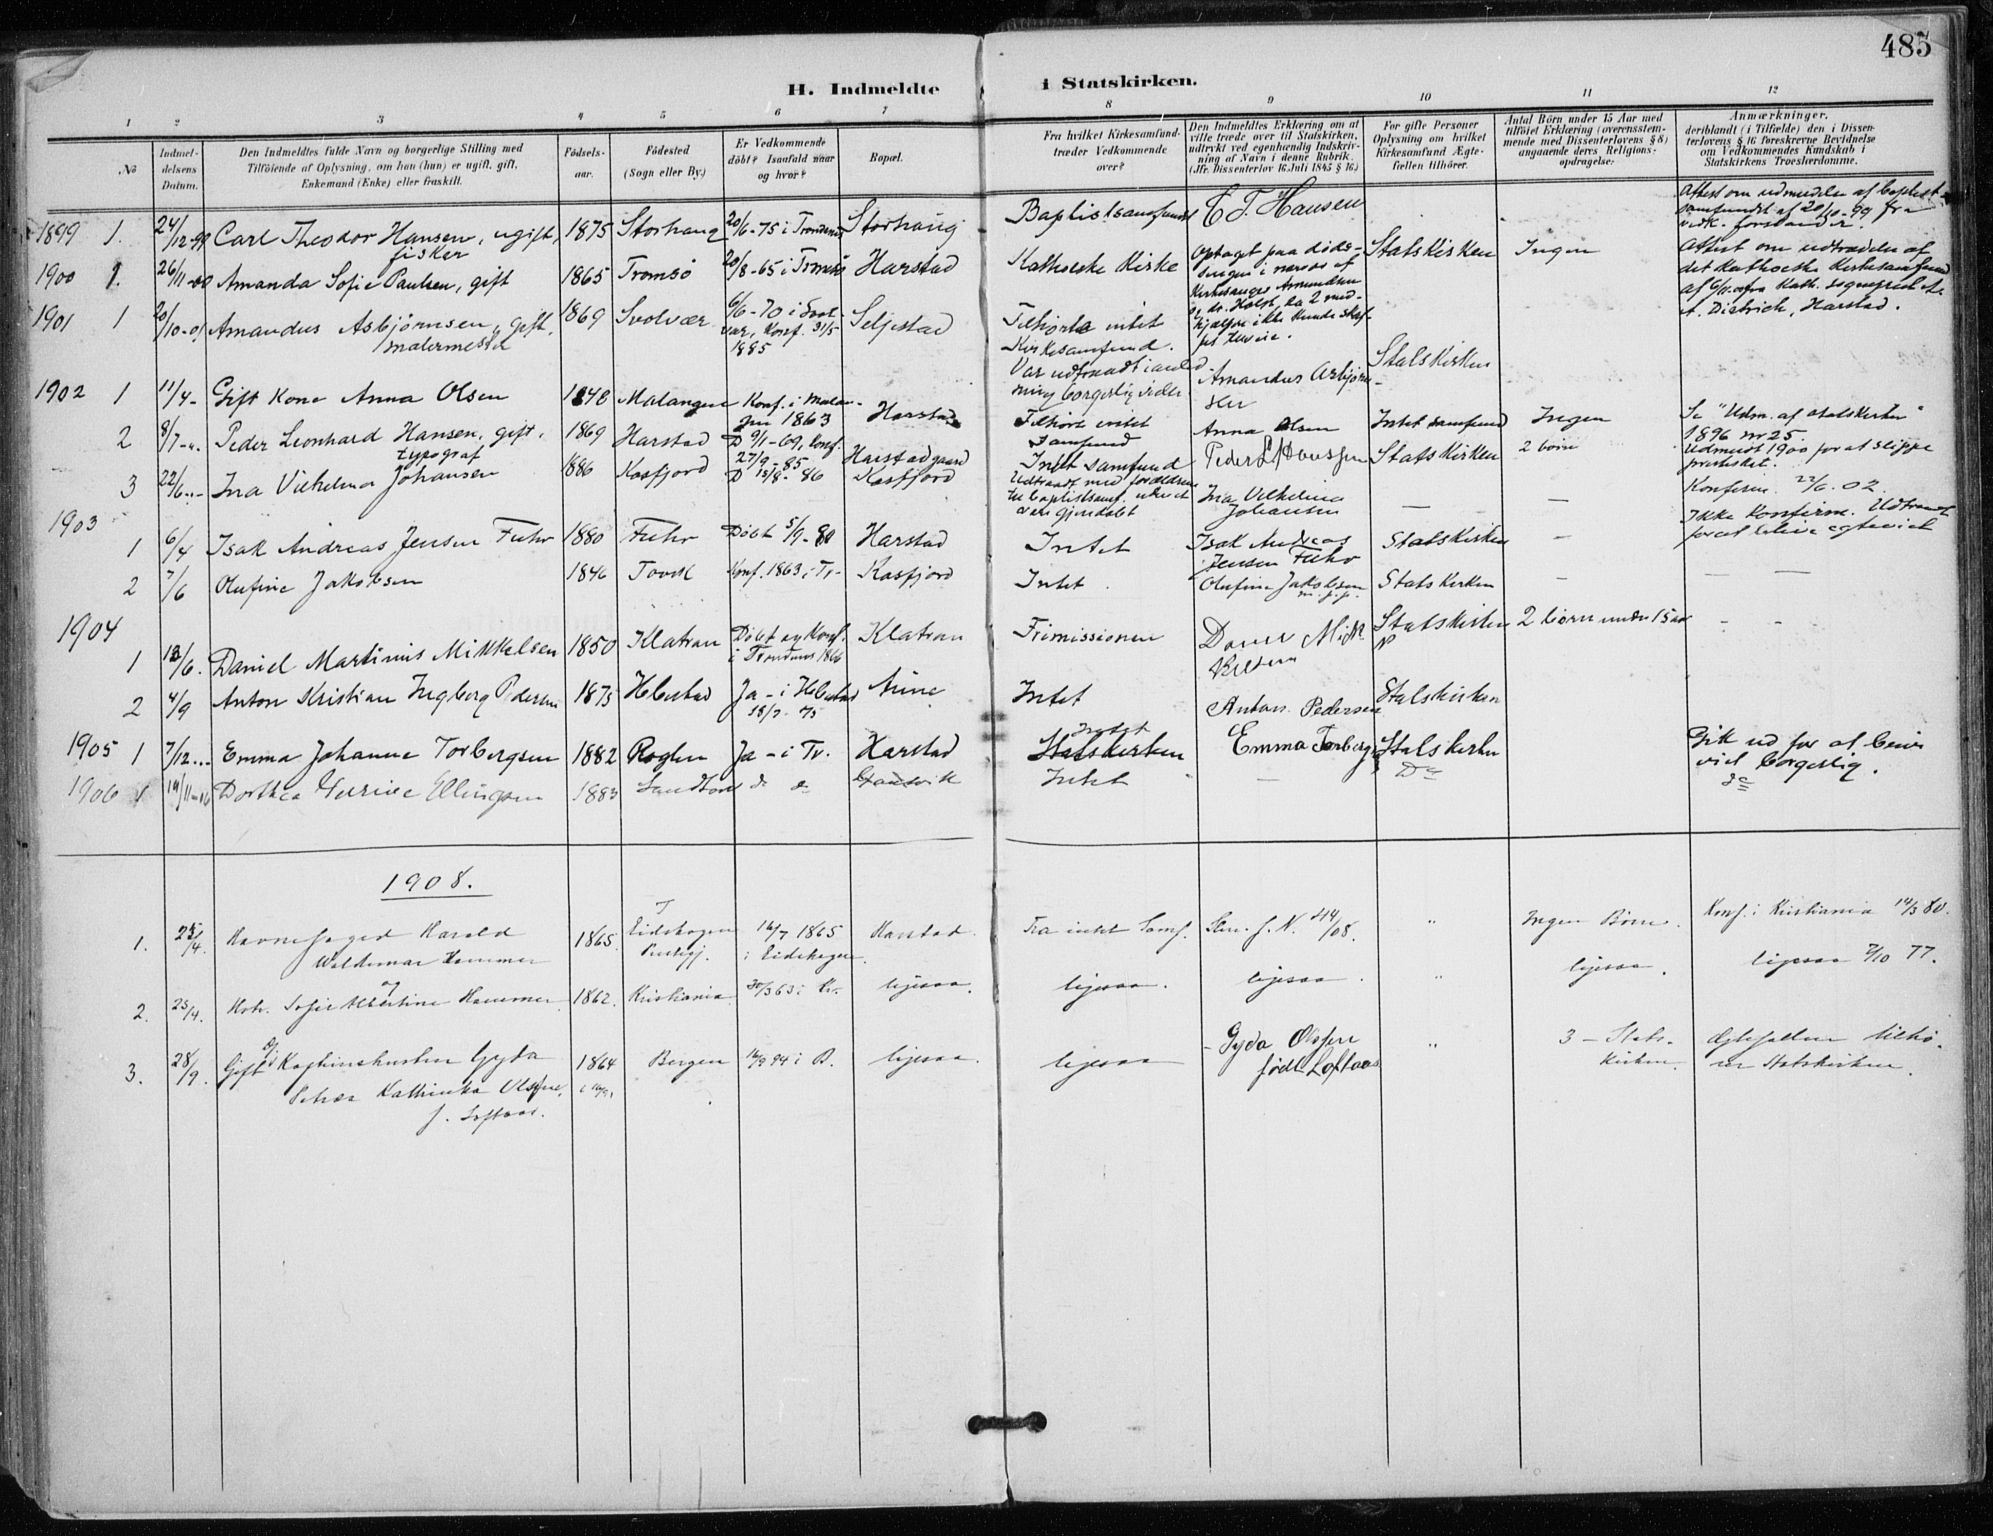 485
H. Indmeldte i Statskirken.
1 2 3 4 5 6 7 8 9 10 11 12
No
Indmel-
delsens
Datum.
Den Indmeldtes fulde Navn og borgerlige Stilling med
Tilföiende af Oplysning, om han (hun) er ugift, gift,
Enkemand (Enke) eller fraskilt.
Födsels-
aar.
Födested
(Sogn eller By.)
Er Vedkommende
döbt? Isaafald naar
og hvor?
Bopæl.
Fra hvilket Kirkesamfund
træder Vedkommende
over?
Den Indmeldtes Erklæring om at
ville træde over til Statskirken,
udtrykt ved egenhændig Indskriv-
ning af Navn i denne Rubrik.
(Jfr. Dissenterlov 16 Juli 1845 § 16.)
For gifte Personer
Oplysning om hvilket
Kirkesamfund Ægte-
fællen tilhörer.
Antal Börn under 15 Aar med
tilföiet Erklæring (overensstem-
mende med Dissenterlovens § 8)
angaaende deres Religions-
opdragelse.
Anmærkninger,
deriblandt (i Tilfælde) den i Dissen-
terlovens § 16 foreskrevne Bevidnelse
om Vedkommendes Kundskab i
Statskirkens Troeslærdomme.
1899 1. 24/12-99 Carl Theodor Hansen, ugift, fisker 1875 Storhaug 20/6-75 i Trondenes Storhaug Baptistsamfundet C T. Hansen
Attest om udmeldelse af baptist-
samfundet af 20/10-99 fra
vedk. forstander.
1900 1. 26/11-00 Amanda Sofie Paulsen, gift 1865 Tromsö 20/8-65 i Tromsö Harstad Katholske Kirke
Optaget paa døds-
sengen i nærvær af
Kirkesanger Amundsen
og dr. Holst, da 2 med-
hjælpere ikke kunde skaf-
fes tilveie.
Statskirken Ingen
Attest om udtrædelse af
det katholske kirkesamfund
af 6/11-00 fra kath. sogneprest
Dietrich, Harstad.
1901 1 20/10-01 Amandus Asbjørnsen, gift, malermester 1869 Svolvær 6/6-70 i Svol-
vær, Konf. 31/5
1885
Seljestad
Tilhørte intet
Kirkesamfund.
Var udtraadt i anled-
ning borgerlig
Amandus Asbjørn-
sen
Statskirken
1902 1 11/4- Gift Kone Anna Olsen 1848 Malangen Konf. i Malan-
gen 1863
Harstad
Tilhørte intet
samfund
Anna Olsen Intet samfund Ingen
Se "Udm. af statskirken"
1896 nr 25.
2 8/7-" Peder Leonhard Hansen, gift, typograf 1869 Harstad D 9/1-69, Konf.
27/9-85
Harstadgaard Intet samfund Peder L Hanssen Statskirken 2 börn
Udmeldt 1900 for at slippe
presteskat.
3 22/6 .. - Ina Vilhelma Johansen 1886 Kasfjord D 15/8-86 Kasfjord
Udtraadt med forældrene
til baptistsamf. uden at
være gjendøbt
Ina Vilhelma
Johansen
— —
Konferm. 22/6. 02.
1903
1 6/4 Isak Andreas Jensen Fuhr 1880 Fuhr Döbt 5/9-80 Harstad Intet Isak Andreas
Jensen Fuhr
Statskirken —
Ikke konferm. Udtraadt
for at blive egteviet
2 7/6 Olufine Jakobsen 1846 Tovik Konf. 1863 i Tr- Kasfjord Intet Olufine Jakobsen
m. p. p.
Statskirken — — —
1904
1 12/6. Daniel Martinus Mikkelsen 1850 Klatran Döbt og Konf.
i Trondenes 1866
Klatran Frimissionen Daniel Mik
kelsen
Statskirken 2 börn under 15 aar - -
2 4/9 Anton Kristian Ingberg Pedersen 1875 Ibestad Ja - i Ibestad
18/7-75
Aune Intet Anton Pedersen Statskirken
1905 1 7/12... Emma Johanne Torbergsen 1882 Roglen Ja - i Tr. Harstad Intet
Statskirken
Emma Torbergs Statskirken
Gik ud for at blive
viet borgerlig.
1906 1 19/11-06 Dorthea Ellingsen 1883 Sandtorv do do Intet — Do
do
1908.
1. 23/4. Havnefoged Harald
Waldemar Hammer
1865. Eidskogen
Prestegj.
16/7 1865
i Eidskogen.
Harstad. Fra intet Samf. 24/4 08. " Ingen Børn. Konf. i Kristiania 14/3 80.
og
2. 23/4. Hstr. Sofie Albertine Hammer 1862. Kristiania 30/3 63 i Kr. ligesaa. ligesaa. ligesaa. " ligesaa. ligesaa 7/10 77.
3. 28/9. Gift Gyda
Petrea Kathinka Olsen,
f. Loftaas.
1864 Bergen i B. ligesaa. ligesaa Gyda Olssen
født Loftaas
" 3 - Stats-
kirken.
Ægtefællen tilhø-
rer Statskirken.